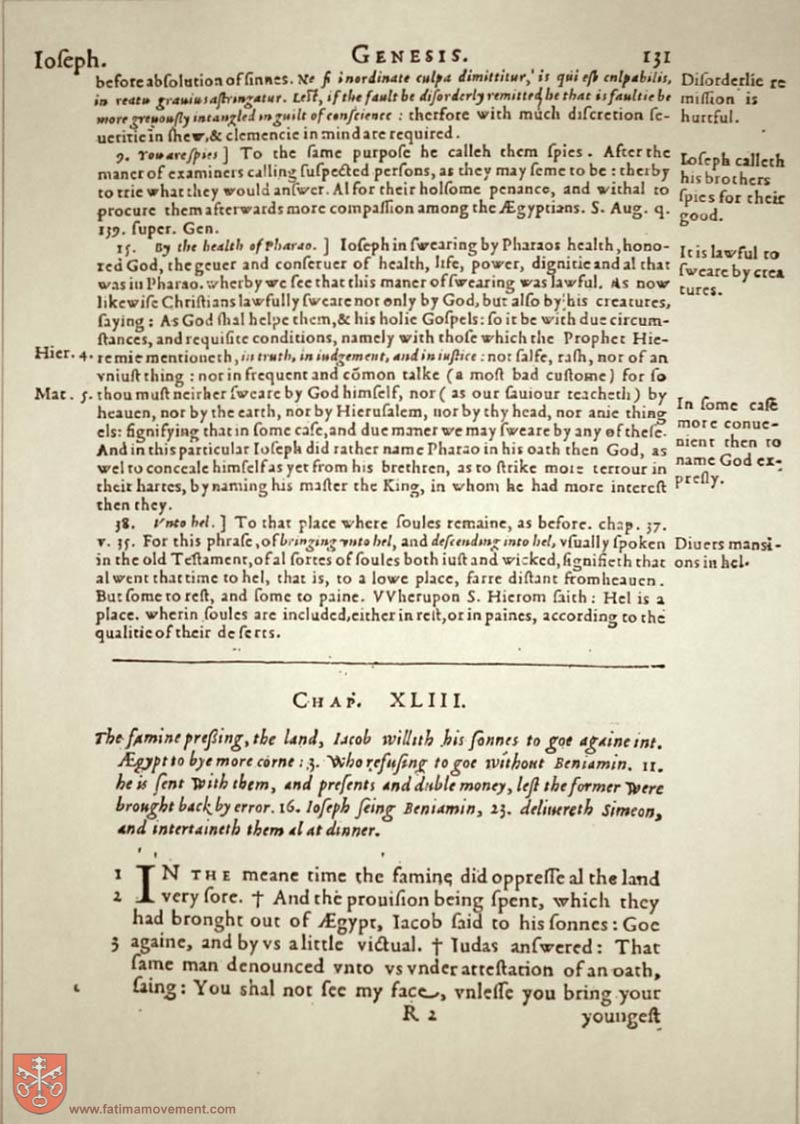 Ioſeph.
GENESIS.
131
before abſolution of ſinnes. Ne ſi inordinate culpa dimittitur, is qui eſt culpabilis,
in reatu grauius aſtringatur. Leſt, if the fault be diſorderly remitted he that is faultie be
more greuouſly intangled in guilt of conſcience : therfore with much diſcretion ſe-
ueritie in ſhew, & clemencie in mind are required.
Diſorderlie re
miſſion is
hurtful.
9. You are ſpies ] To the ſame purpoſe he calleh them ſpies. After the
maner of examiners calling ſuſpected perſons, as they may ſeme to be : therby
to trie what they would anſwer. Al for their holſome penance, and withal to
procure them afterwards more compaſſion among the Ægyptians. S. Aug. q.
139. ſuper. Gen.
Ioſeph calleth
his brothers
ſpies for their
good.
15. By the health of Pharao. ] Ioſeph in ſwearing by Pharaos health, hono-
red God, the geuer and conſeruer of health, life, power, dignitie and al that
was in Pharao. wherby we ſee that this maner of ſwearing was lawful. As now
likewiſe Chriſtians lawfully ſweare not only by God, but alſo by his creatures,
ſaying : As God ſhal helpe them, & his holie Goſpels : ſo it be with due circum-
ſtances, and requiſite conditions, namely with thoſe which the Prophet Hie-
remie mentioneth, in truth, in iudgement, and in iuſtice : not falſe, raſh, nor of an
vniuſt thing : nor in frequent and cõmon talke (a moſt bad cuſtome) for ſo
thou muſt neirher ſweare by God himſelf, nor ( as our ſauiour teacheth ) by
heauen, nor by the earth, nor by Hieruſalem, nor by thy head, nor anie thing
els: ſignifying that in ſome caſe, and due maner we may ſweare by any of theſe.
And in this particular Ioſeph did rather name Pharao in his oath then God, as
wel to conceale himſelf as yet from his brethren, as to ſtrike more terrour in
their hartes, by naming his maſter the King, in whom he had more intereſt
then they.
It is lawful to
ſweare by crea
tures.
Hier. 4.
Mat. 5.
In ſome caſe
more conue-
nient then to
name God ex-
preſly.
38. Vnto hel. ] To that place where ſoules remaine, as before. chap. 37.
v. 35. For this phraſe, of bringing vnto hel, and deſcending into hel, vſually ſpoken
in the old Teſtament, of al ſortes of ſoules both iuſt and wicked, ſignifieth that
al went that time to hel, that is, to a lowe place, farre diſtant from heauen.
But ſome to reſt, and ſome to paine. VVherupon S. Hierom ſaith : Hel is a
place. wherin ſoules are included, either in reſt, or in paines, according to the
qualitie of their deſerts.
Diuers manſi-
ons in hel.
CHAP. XLIII.
The famine preßing, the land, Iacob willith his ſonnes to goe againe int.
Ægypt to bye more corne : 3. Who refuſing to goe without Beniamin. 11.
he is ſent with them, and preſents and duble money, leſt the former were
brought back by error. 16. Ioſeph ſeing Beniamin, 23. deliuereth Simeon,
and intertaineth them al at dinner.
1 IN THE meane time the famine did oppreſſe al the land
2 very ſore. † And the prouiſion being ſpent, which they
had bronght out of Ægypt, Iacob ſaid to his ſonnes : Goe
3 againe, and by vs a little victual. † Iudas anſwered : That
ſame man denounced vnto vs vnder atteſtation of an oath,
ſaing : You shal not ſee my face, vnleſſe you bring your
R 2
youngeſt
www.fatimamovement.com